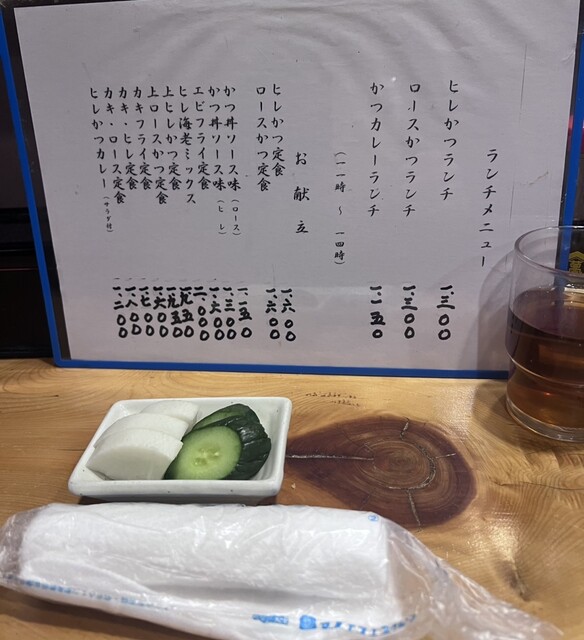 ランチメニュー
ヒレかつランチ 一、三〇〇
ロースかつランチ 一、三〇〇
かつカレーランチ 一、一五〇
(一一時 〜 一四時)
お献立
ヒレかつ定食 一、六〇〇
ロースかつ定食 一、六〇〇
かつ丼ソース味(ロース) 一、一五〇
かつ丼ソース味(ヒレ) 一、三〇〇
エビフライ定食 一、六〇〇
ヒレ海老ミックス 二、〇〇〇
上ヒレかつ定食 一、九五〇
上ロースかつ定食 一、九五〇
カキフライ定食 一、六〇〇
カキ・ヒレ定食 一、七〇〇
カキ・ロース定食 一、八〇〇
ヒレかつカレー(サラダ付) 一、二〇〇